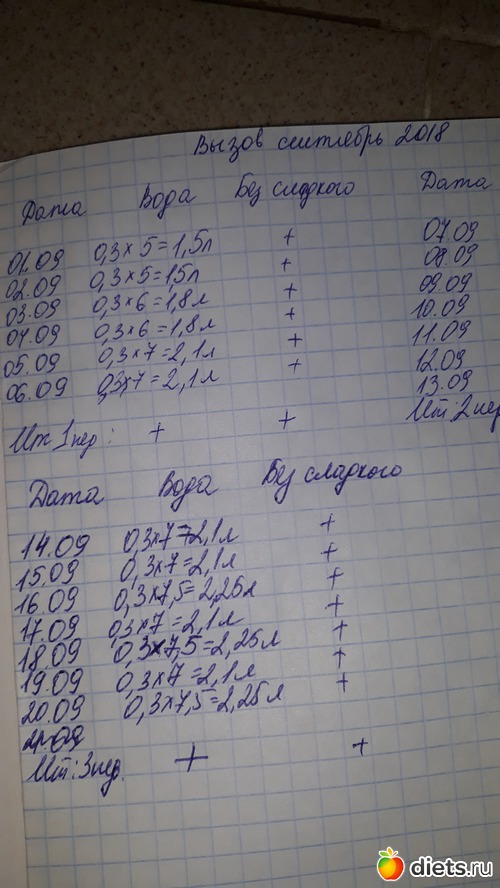 Вызов сентябрь 2018
Дата Вода Без сладкого Дата
01.09 0,3×5=1,5л + 07.09
02.09 0,3×5=1,5л + 08.09
03.09 0,3×6=1,8л + 09.09
04.09 0,3×6=1,8л + 10.09
05.09 0,3×7=2,1л + 11.09
06.09 0,3×7=2,1л + 12.09
13.09
Ит 1 нед: + + Ит: 2 нед
Дата Вода Без сладкого
14.09 0,3×7=2,1л +
15.09 0,3×7=2,1л +
16.09 0,3×7,5=2,25л +
17.09 0,3×7=2,1л +
18.09 0,3×7,5=2,25л +
19.09 0,3×7=2,1л +
20.09 0,3×7,5=2,25л +
Ит: 3 нед. + +
diets.ru